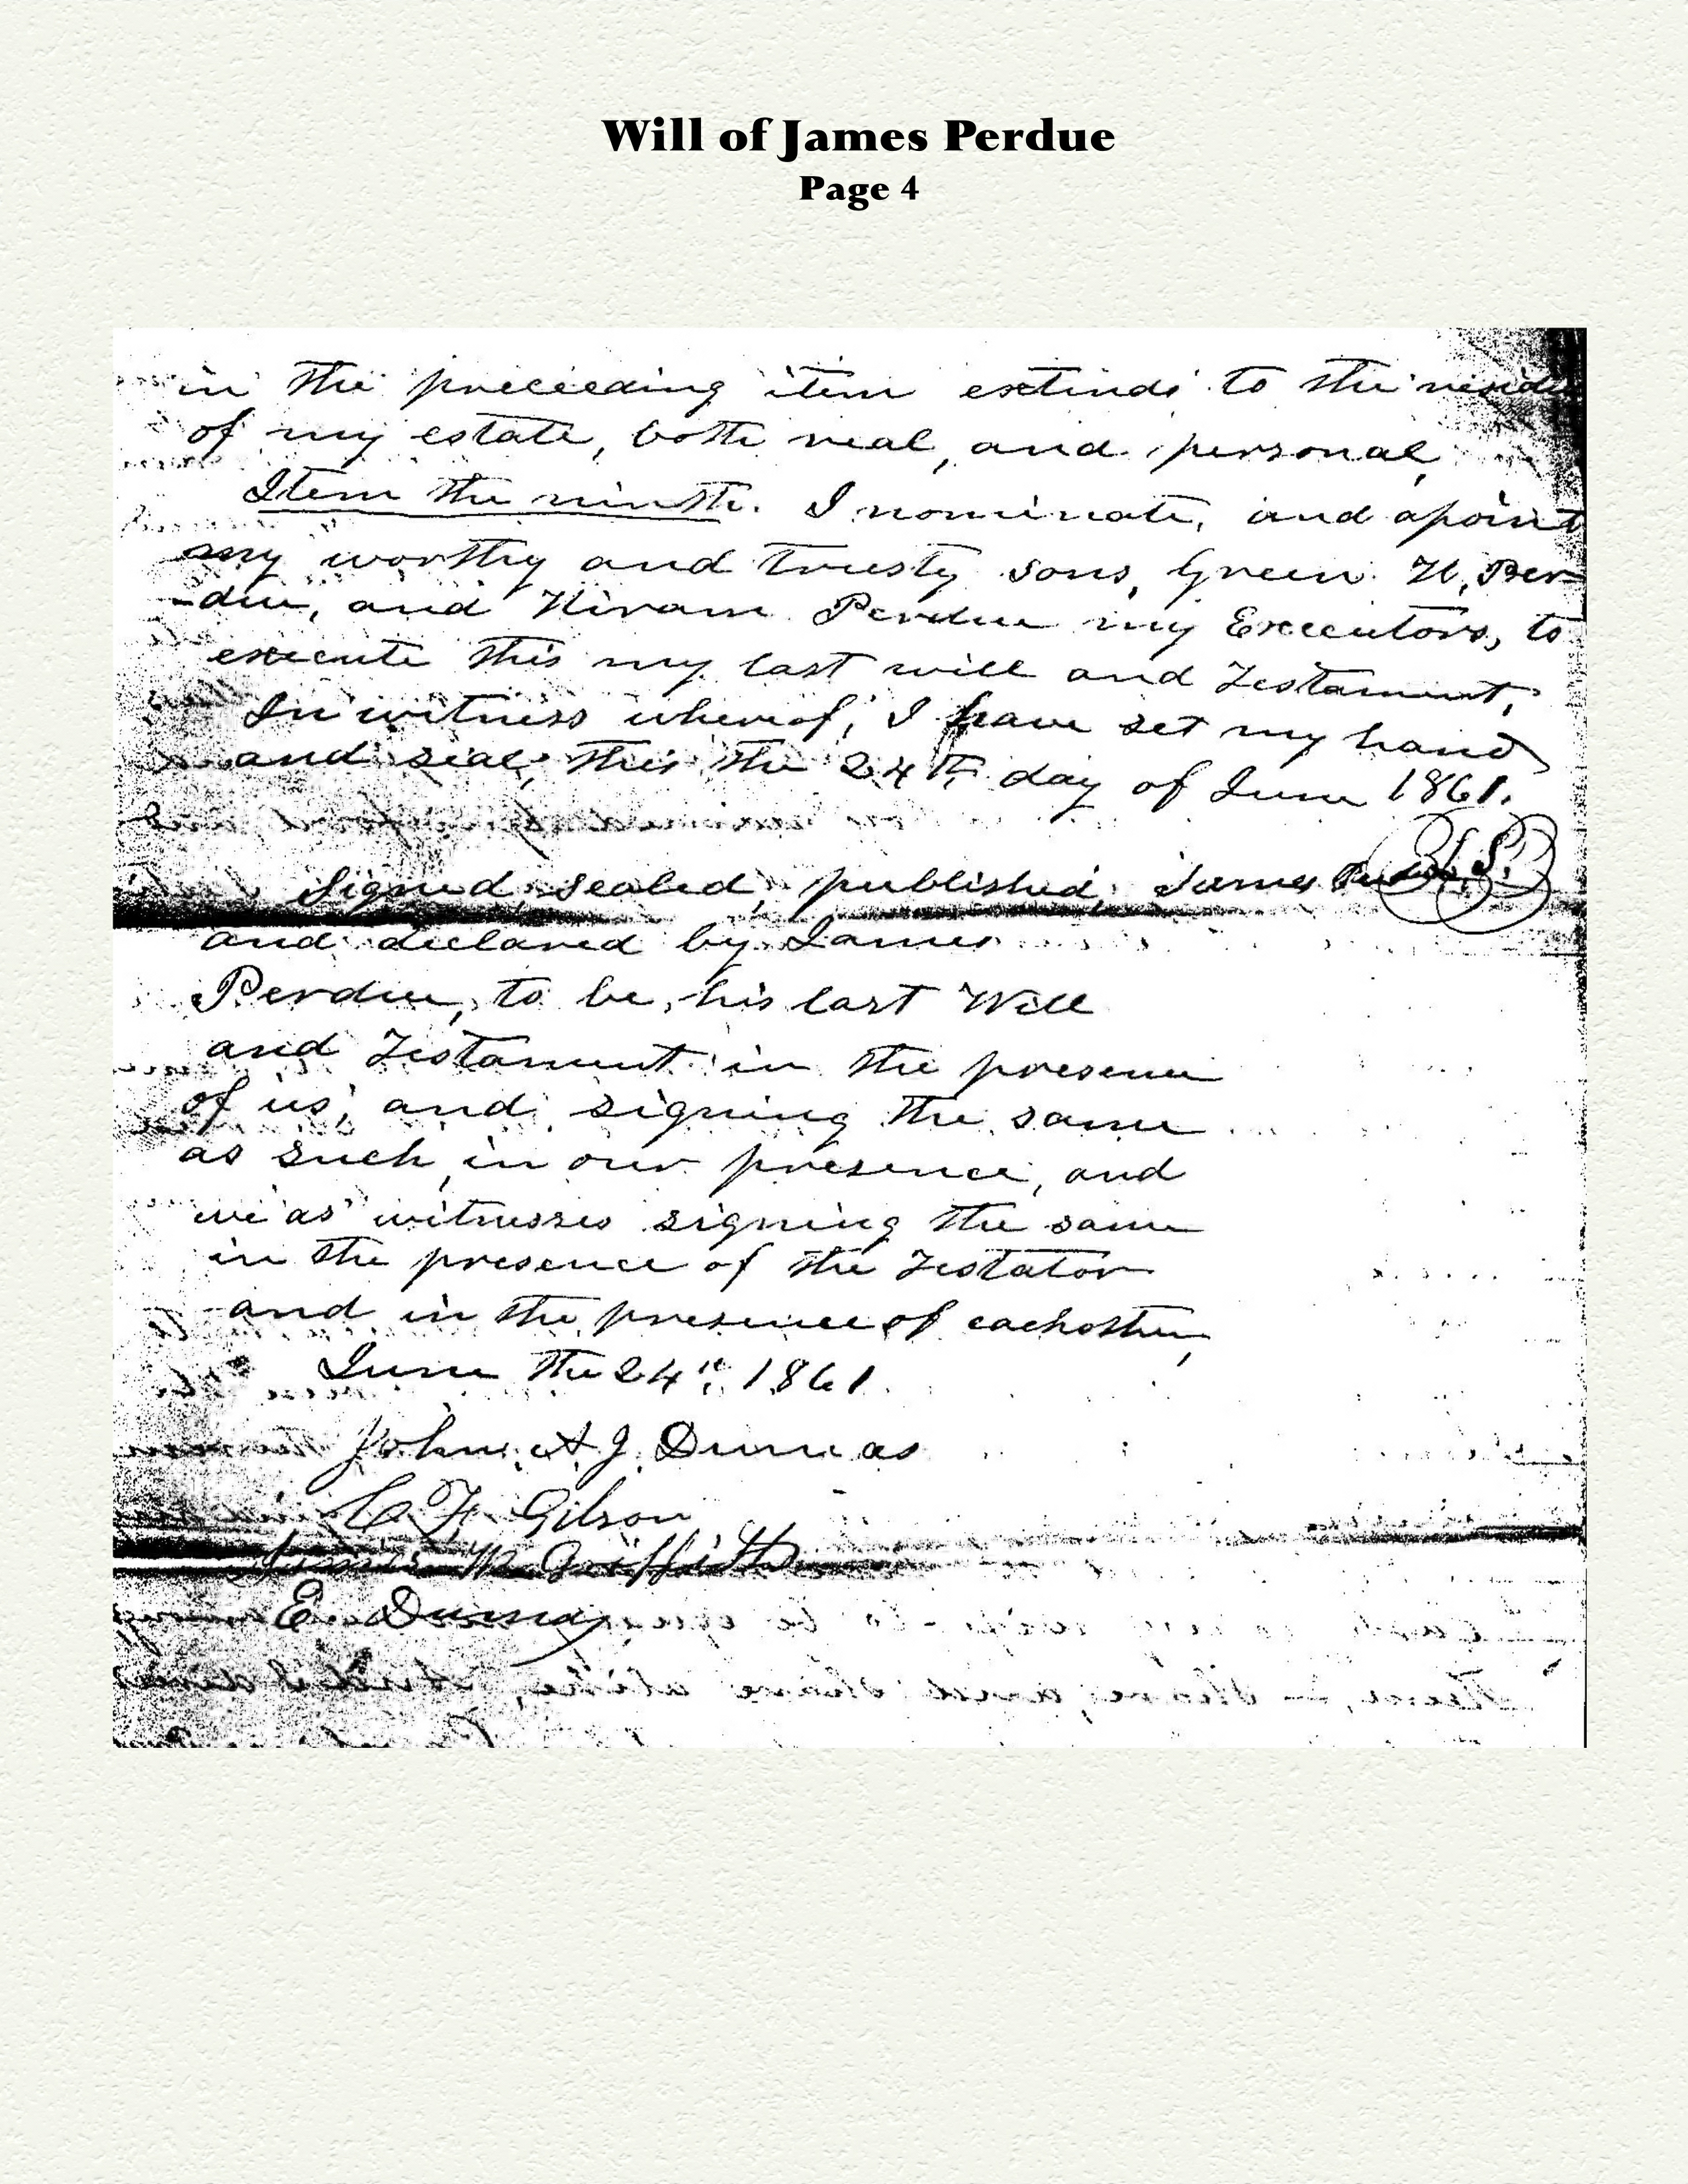 Will of James Perdue
Page 4
in the preceeding item extends to the
of my estate, both real, and personal,
Item the ninth. I nominate, and apoint
my worthy and trusty sons, Green H. Per-
-due, and Hiram Perdue my Executors, to
execute this my last will and Testament,
In witness whereof, I have set my hand
and seal, this the 24th day of June 1861.
Signed, sealed, published, James Perdue L.S.
and declared by James
Perdue, to be, his last Will
and Testament in the presence
of us, and signing the same
as such, in our presence, and
we as witnesses signing the same
in the presence of the Testator
and in the presence of eachother,
June the 24th, 1861.
John A J Dumas
C. F. Gibson
James Griffith
E. Dumas